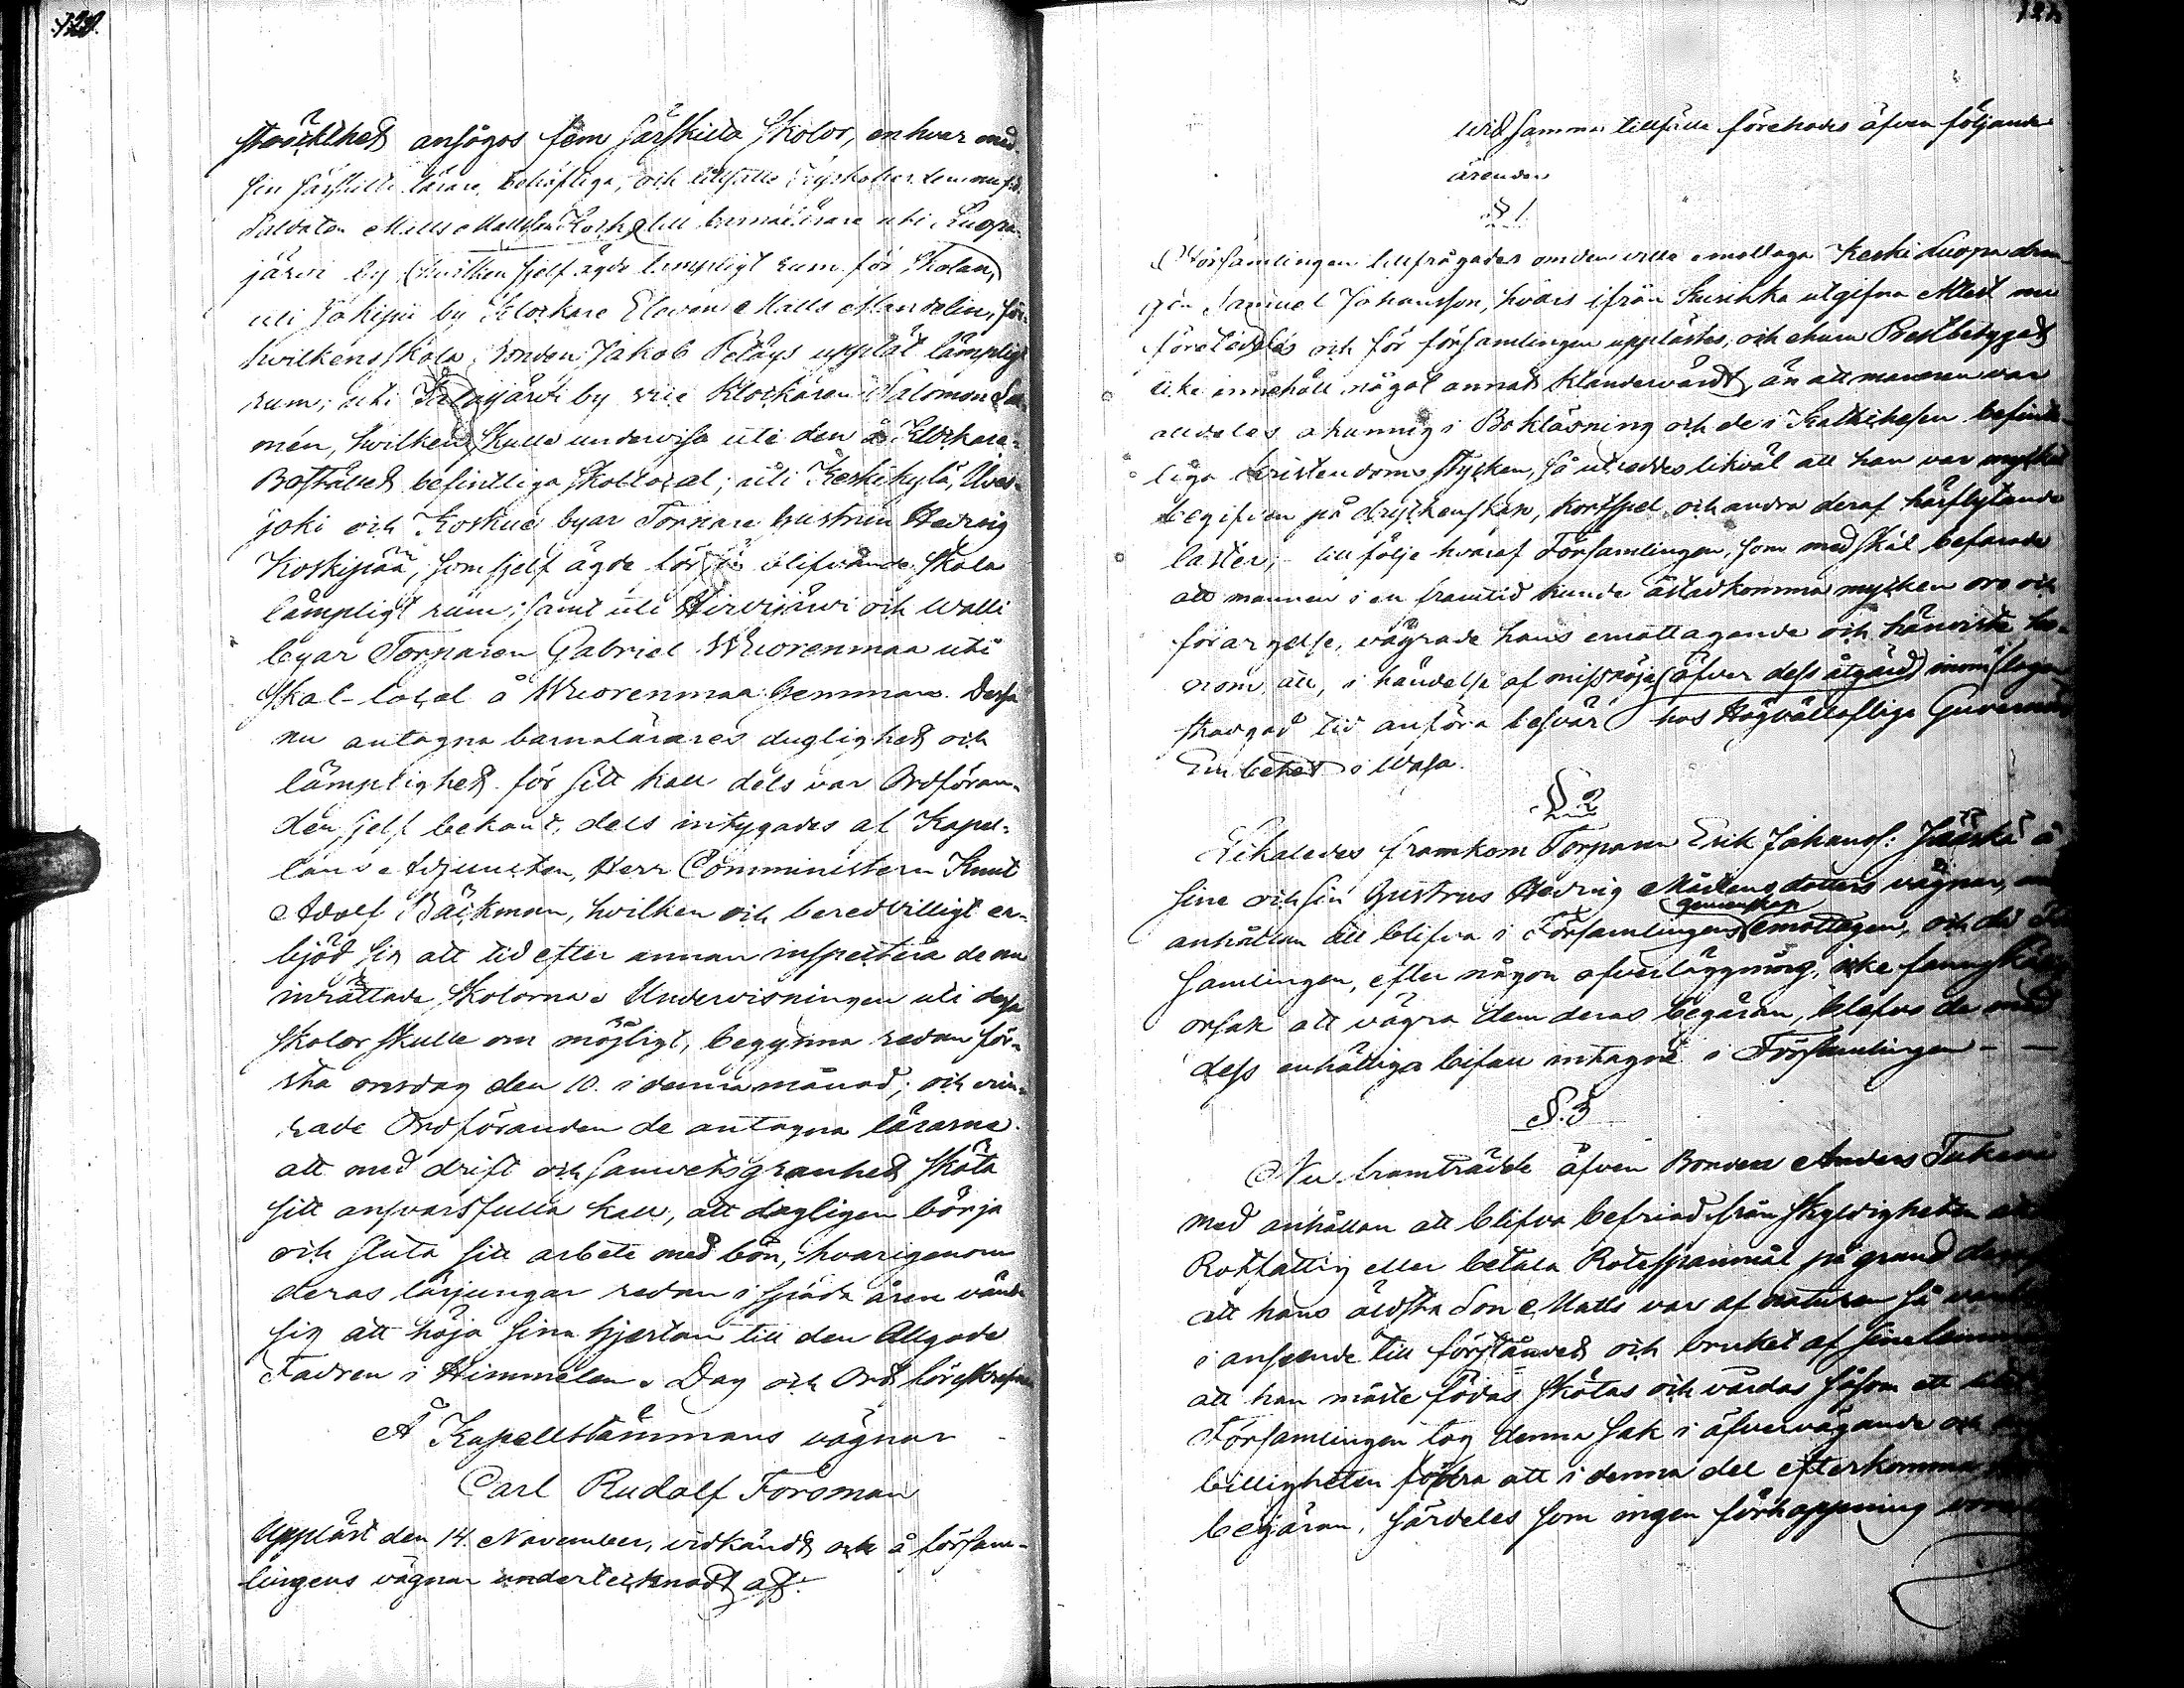 120.
ansågos fem särskilda skolor, en hvar med
sin särskilda lärare, behöfliga, och tillsatte
Soldaten Matts Mattsson till barnalärare uti Luopa-
järvi by (hvilken sjelf ägde lämpligt rum för skolan)
uti Jokipii by Klockare Eleven Matts Mandelin, för
hvilkens skola Bonden Jakob Peläys upplät lämpligt
rum; uti Jalasjärvi by vice Klockaren Salomon Sa-
mén, hvilken skulle undervisa uti den å Klockare-
Bostället befintliga skollocal; uti Keskikylä, Ilves-
joki och Koskue byar Torpare hustrun Hedvig
Koskipää, som sjelf ägde för blifvande skola
lämpligt rum; samt uti Hirvijärvi och Walli
byar Torparen Gabriel Wuorenmaa uti
Skol-local å Wuorenmaa hemman. Dessa
nu antagna barnalärares duglighet och
lämplighet för sitt kall dels var Ordföran-
den sjelf bekant, dels intygades af Kapel-
lans Adjuncten, Herr Comministern Knut
Adolf Bäckman, hvilken och beredvilligt er-
bjöd sig att tid efter annan inspectera de nu
inrättade skolorna. Undervisningen uti dessa
skolor skulle om möjligt, begynna redan för-
sta onsdag den 10. i denna månad; och erin-
rade Ordföranden de antagna lärarne
att med drift och samvetsgranhet sköta
sitt ansvarsfulla kall, att dagligen börja
och sluta sitt arbete med bön, hvarigenom
deras lärjungar redan i späda åren vända
sig att höja sina hjertan till den Allgode
Fadren i Himmelen. Dag och Ort föreskrefne
Å Kapellstämmans vägnar
Carl Rudolf Forsman
Uppläst den 14. November, vidkändt och å försam-
lingens vägnar undertecknadt af:
121
Wid samma tillfälle förehades äfven följande
ärenden
§ 1.
Församlingen tillfrågades om den ville emottaga Keski Luopa drän-
gen Samuel Johansson, hvars ifrån Kurikka utgifna Attest nu
företeddes och för församlingen upplästes, och ehuru Prestbetyget
icke innehöll något annat klandervärdt, än att mannen var
alldeles okunnig i Bokläsning och de i Kathekesen befint-
liga Cristendoms stycken, så utreddes likväl att han var mycket
begifven på dryckenskap, kortspel och andra deraf härflytande
laster; till följe hvaraf Församlingen, som med skäl befarade
att mannen i en framtid kunde åstadkomma mycken oro och
förargelse, vägrade hans emottagande och hänviste ho-
nom att, i händelse af missnöje öfver dess åtgärd, inom laga
stadgad tid anföra besvär hos Högvällofliga Guvernörs
Embetet i Wasa.
§ 2
Likaledes framkom Torparen Erik Johanss: Jääskä å
sine och sin hustrus Hedvig Mårtens dotters vägnar, med
anhållan att blifva i Församlingens gemenskap emottagen, och då För-
samlingen, efter någon öfverläggning, icke fann skälig
orsak att vägra dem deras begäran, blefvo de med
dess enhälliga bifall intagne i Församlingen – –
§. 3
Nu framträdde äfven Bonden Anders
med anhållan att blifva befriad från skyldigheten att
Rotfattig eller betala Rotespannmål på grund deraf
att hans äldsta Son Matts var af naturen så
i anseende till förståndet och bruket af sine
att han måste födas skötas och vårdas såsom ett
Församlingen tog denna sak i öfvervägande och
billigheten fodra att i denna del efterkomma
begäran, särdeles som ingen förhoppning